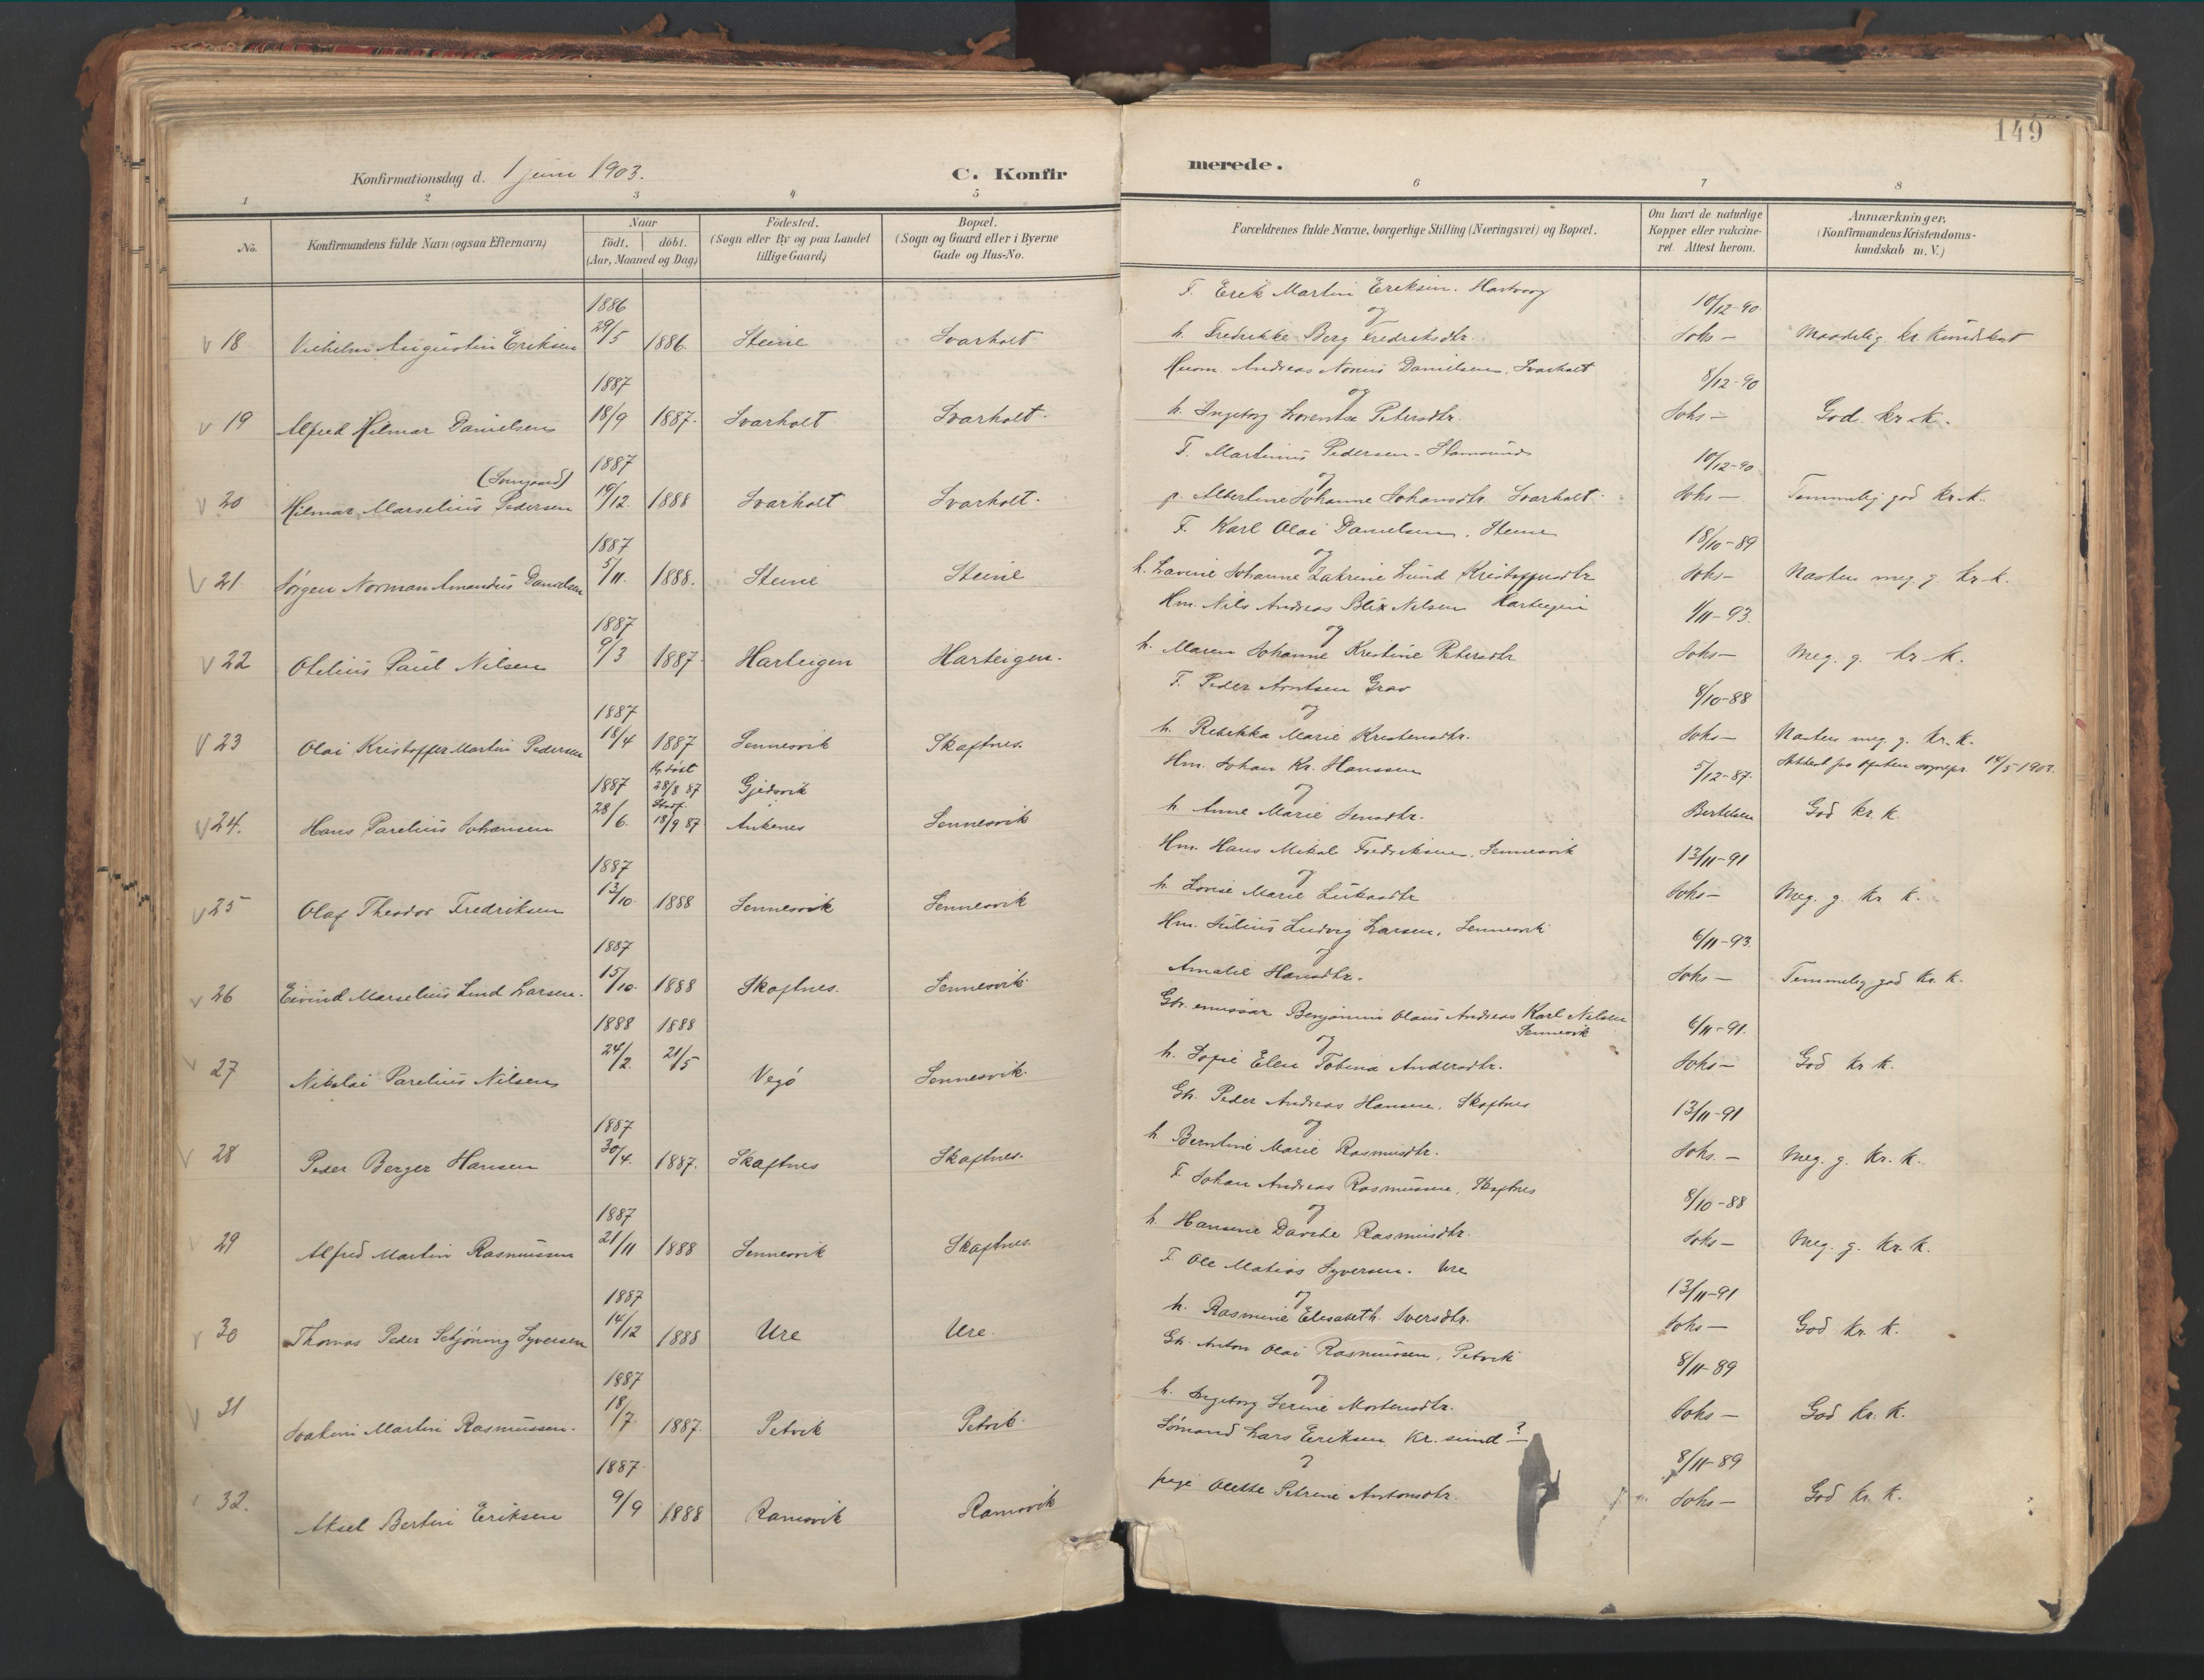 149
Konfirmationsdag d. 1 juni 1903.
C. Konfirmerede.
1 2 3 4 5 6 7 8
No.
Konfirmandens fulde Navn (ogsaa Efternavn)
Naar
födt. döbt.
(Aar, Maaned og Dag)
Födested.
(Sogn eller By og paa Landet
tillige Gaard)
Bopæl.
(Sogn og Gaard eller i Byerne
Gade og Hus-No.
Forældrenes fulde Navne, borgerlige Stilling (Næringsvei) og Bopæl.
Om havt de naturlige
Kopper eller vakcine-
ret. Attest herom.
Anmærkninger,
(Konfirmandens Kristendoms-
kundskab m. V.)
1886
F. Erik Martin Eriksen.
10/12-90
og
V 18 Vilhelm Augustin Eriksen 29/5 1886 Steine Svarholt h. Fredrikke Berg Fredriksdtr. Johs —
1887
Andreas Danielsen, Svarholt
8/12-90
og
V 19 Alfred Hilmar Danielsen 18/9 1887. Svarholt Svarholt. h. Ingeborg Lorentse Petersdtr. Johs — God kr. k.
1887
F. Martinus Pedersen - Stamsund
10/12-90
og
V 20 Hilmar Marselius Pedersen 19/12 1888 Svarholt Svarholt. p. Albertine Johanne Johansdtr. Svarholt. Johs — Temmelig god kr. k.
1887
F. Karl Olai Danielsen. Steine
18/10-89
og
V 21 Jörgen Norman Amandus Danielsen 5/11. 1888. Steine Steine h. Lavine Johanne Katrine Lund Kristoffersdtr Johs — Næsten meg. g. kr. k.
1887
Hm. Nils Andreas Blix Nilsen Harteigen
1/11-93.
og
V 22 Otelius Paul Nilsen 9/3 1887. Harteigen Harteigen. h. Maren Johanne Kristine Petersdtr Johs — Meg. g. kr. k.
1887
F. Peder Arntsen Grav
8/10-88
og
V 23 Olai Kristoffer Martin Pedersen 18/4 1887 Sennesvik Skaftnes. h. Rebekka Marie Kristensdtr. Johs — Næsten meg. g. kr. k.
1887 Hj. döbt 28/8 87 Gjedsvik
Hm. Johan Kr. Hanssen
5/12-87.
Attest fra sognepr. 14/5 1903.
og
V 24. Hans Parelius Johansen 28/6. Stadf. 18/9 87 Ankenes Sennesvik h. Anne Marie Jensdtr. Bertelsen God kr. k.
1887
Hm. Hans Mikal Fredriksen. Sennesvik
13/11-91
og
V 25 Olaf Theodor Fredriksen 13/10. 1888 Sennesvik Sennesvik h. Lovise Marie Lukasdtr Johs — Meg. g. kr. k.
1887
Hm. Julius Ludvig Larsen, Sennesvik
6/11-93.
og
V 26 Eivind Marselius Lind Larsen. 15/10. 1888 Skaftnes. Sennesvik Amalie Hansdtr. Johs — Temmelig god kr. k.
1888 1888
Gbr. emissær Benjamin Olaus Andreas Karl Nilsen
Sennesvik
6/11-91.
og
V 27 Nikolai Parelius Nilsen 24/2. 21/5 Vegö Sennesvik. h. Sofie Elen Tobina Andersdtr. Johs — God kr. k.
1887
Gbr. Peder Andreas Hansen. Skaftnes
13/11-91
og
V 28 Peder Berger Hansen 30/4. 1887. Skaftnes Skaftnes. h. Berntine Marie Rasmusdtr. Johs. — Meg. g. kr. k.
1887
F. Johan Andreas Rasmussen, Skaftnes
8/10-88
og
V 29 Alfred Martin Rasmussen 21/11 1888 Sennesvik Skaftnes. h. Hansine Dorthe Rasmusdtr. Johs — Meg. g. kr. k.
1887
F. Ole Matias Syversen. Ure
13/11-91
og
V 30 Thomas Peder Schjöning Syversen 14/12 1888 Ure Ure. h. Rasmine Elisabeth Iversdtr. Johs — God kr. k.
1887
Gbr. Anton Olai Rasmussen, Petvik
8/11-89
og
V 31 Joakim Martin Rasmussen. 18/7. 1887. Petvik Petvik. h. Ingeborg Serine Mortensdtr. Johs — God kr. k.
1887.
Sömand Lars Eriksen Kr. sund - ?
8/11-89
og
V 32. Aksel Bertin Eriksen 9/9 1888 Ramsvik Ramsvik pige Olette Petrine Antonsdtr. Johs — God kr. k.